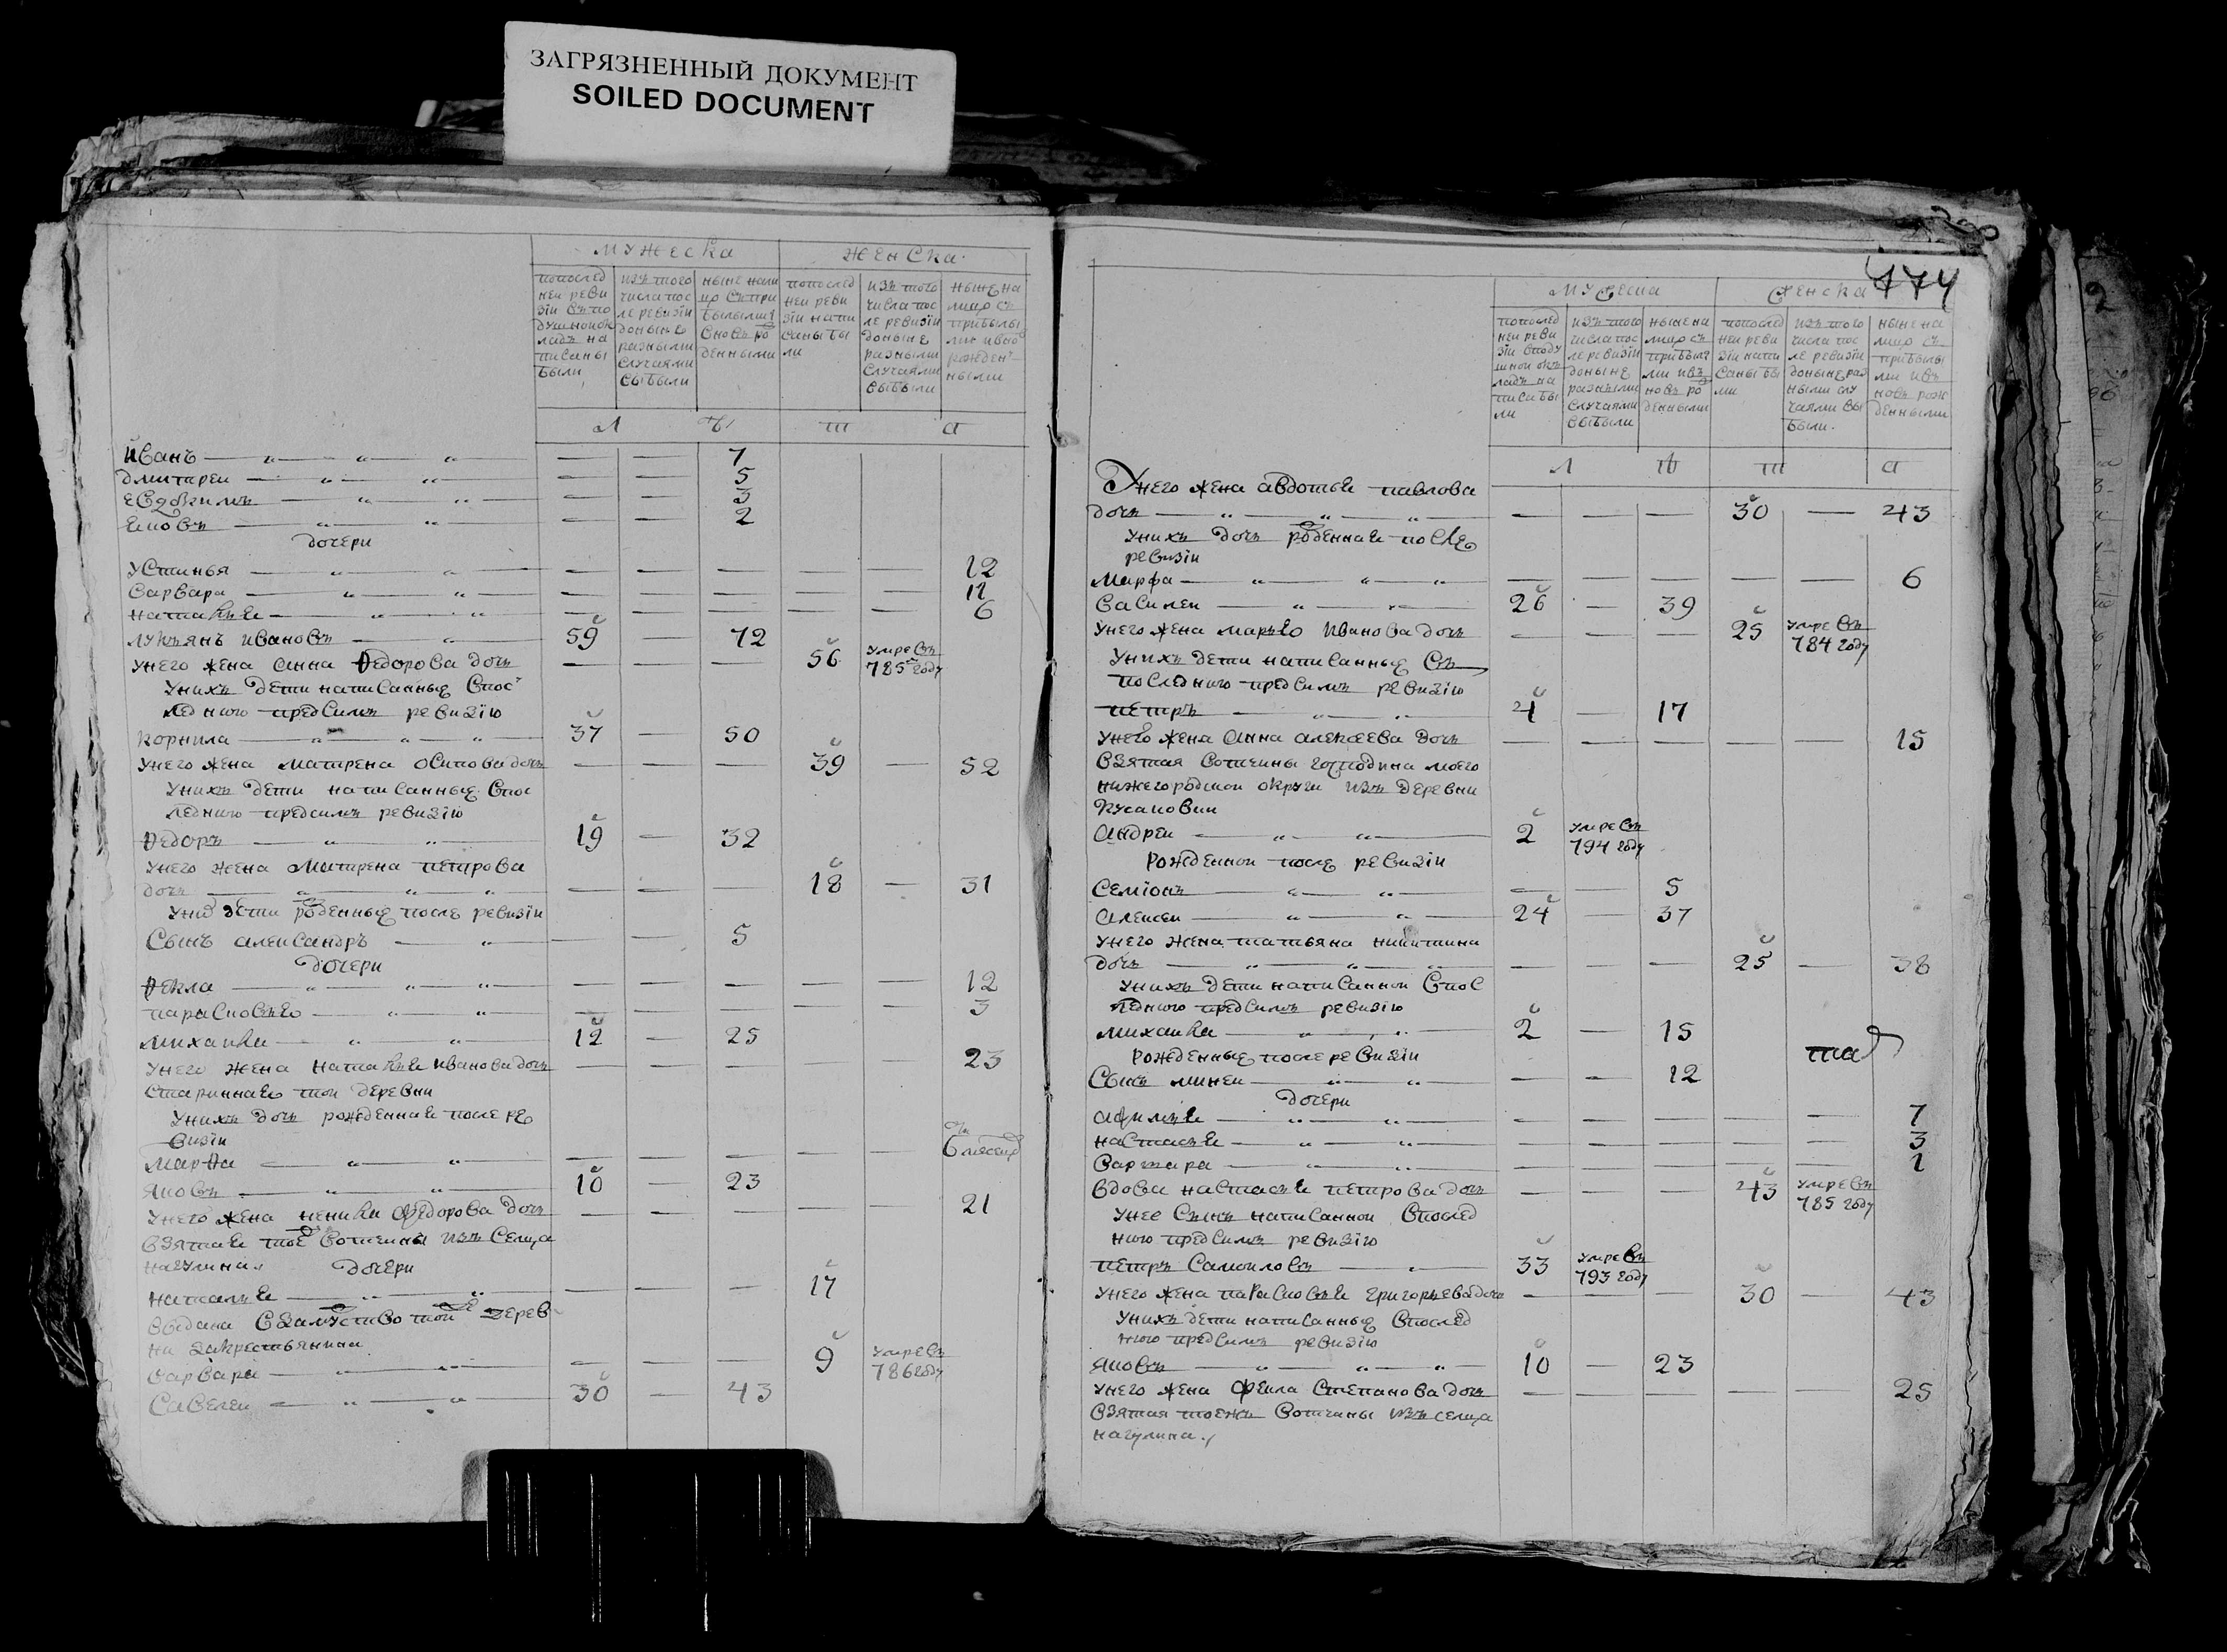 ЗАГРЯЗНЕННЫЙ ДОКУМЕНТ
SOILED DOCUMENT
мужеска женска
попослед ней реви зіи въ по душной ок ладъ на писаны были
изъ того числа пос ле ревизіи доныне разными случаями выбыли
ныне нали цо съ при былыми вновь ро денными
попослед ней реви зіи напи саны бы ли
изъ того числа пос ле ревизіи доныне разными случаями выбыли
ныне на лицо съ прибылы ми и вно рожден ными
Л Т
Иванъ — — — 7
Дмитреи — — — 5
Евдокимъ — — — 3
Яковъ — — — 2
дочери
Устинья — — — — — — 12
Варвара — — — — — — 11
Наталья — — — — — — 6
Лукьянъ Ивановъ — 59 — 72
Унего жена Анна Ѳедорова дочь — — — 56 умре въ 785 году
Унихъ дети написанные впос
леднюю предсимъ ревизію
Корнила — 37 — 50
Унего жена Матрена Осипова дочь — — — 39 — 52
Унихъ дети написанные впос
леднюю предсимъ ревизію
Ѳедоръ — 19 — 32
Унего жена Матрена Петрова
дочь — — — — 18 — 31
Уних дети роденные после ревизіи
Сынъ Александръ — — — 5
дочери
Ѳекла — — — — — — 12
Парасковью — — — — — — 3
Михаила — 12 — 25
Унего жена Наталья Иванова дочь — — — — — 23
старинная тои деревни
Унихъ дочь рожденная после ре
визіи
Марѳа — — — — — — 6 месецо
Яковъ — 10 — 23
Унего жена Ненила Федорова дочь — — — — — 21
взятая тое вотчины изъ селца
Нагулина дочери
Наталья — — — — 17
выдана взамуство тои дерев
ни за крестьянина
Варвара — — — — 9 умре въ 786 году
Савелеи — 30 — 43
774
мужеска женска
попослед ней реви зіи вподу шной окъ ладъ на писа бы ли
изъ того числа пос ле ревизіи доныне разными случаями выбыли
ныне на лицо съ прибылы ми ивъ новь ро денными
попослед ней реви зіи напи саны бы ми
изъ того числа пос ле ревизіи доныне раз ными слу чаями вы были.
ныне на лицо съ прибылы ми ивъ новь рож денными
Л Т
Унего жена Авдотья Павлова
дочь — — — — 30 — 43
Унихъ дочь роденная после
ревизіи
Марфа — — — — — — 6
Василеи — 26 — 39
Унего жена Марью Иванова дочь — — — 25 умре въ 784 году
Унихъ дети написанные въ
последнюю предсимъ ревизію
Петръ — 4 — 17
Унего жена Анна Алексеева дочь — — — — — 15
взятая вотчины господина моего
Нижегородской округи изъ деревни
Андреи — 2 умре въ 794 году
рожденнои после ревизіи
Семіонъ — — — 5
Алексеи — 24 — 37
Унего жена Татьяна Никитина
дочь — — — — 25 — 38
Унихъ дети написаннои впос
леднюю предсимъ ревизію
Михаила — 2 — 15
рожденные после ревизіи
Сынъ Минеи — — — 12
дочери
Афимья — — — — — — 7
Настасья — — — — — — 3
Варвара — — — — — — 1
Вдова Настасья Петрова дочь — — — 43 умре въ 785 году
Унее сынъ написаннои впослед
нюю предсимъ ревизію
Петръ Самоиловъ — 33 умре въ 793 году
Унего жена Парасковья Григорьева дочь — — — 30 — 43
Унихъ дети написанные впослед
нюю предсимъ ревизію
Яковъ — 10 — 23
Унего жена Фекла Степанова дочь — — — — — 25
взятая тоежъ вотчины изъ селца
Нагулина.